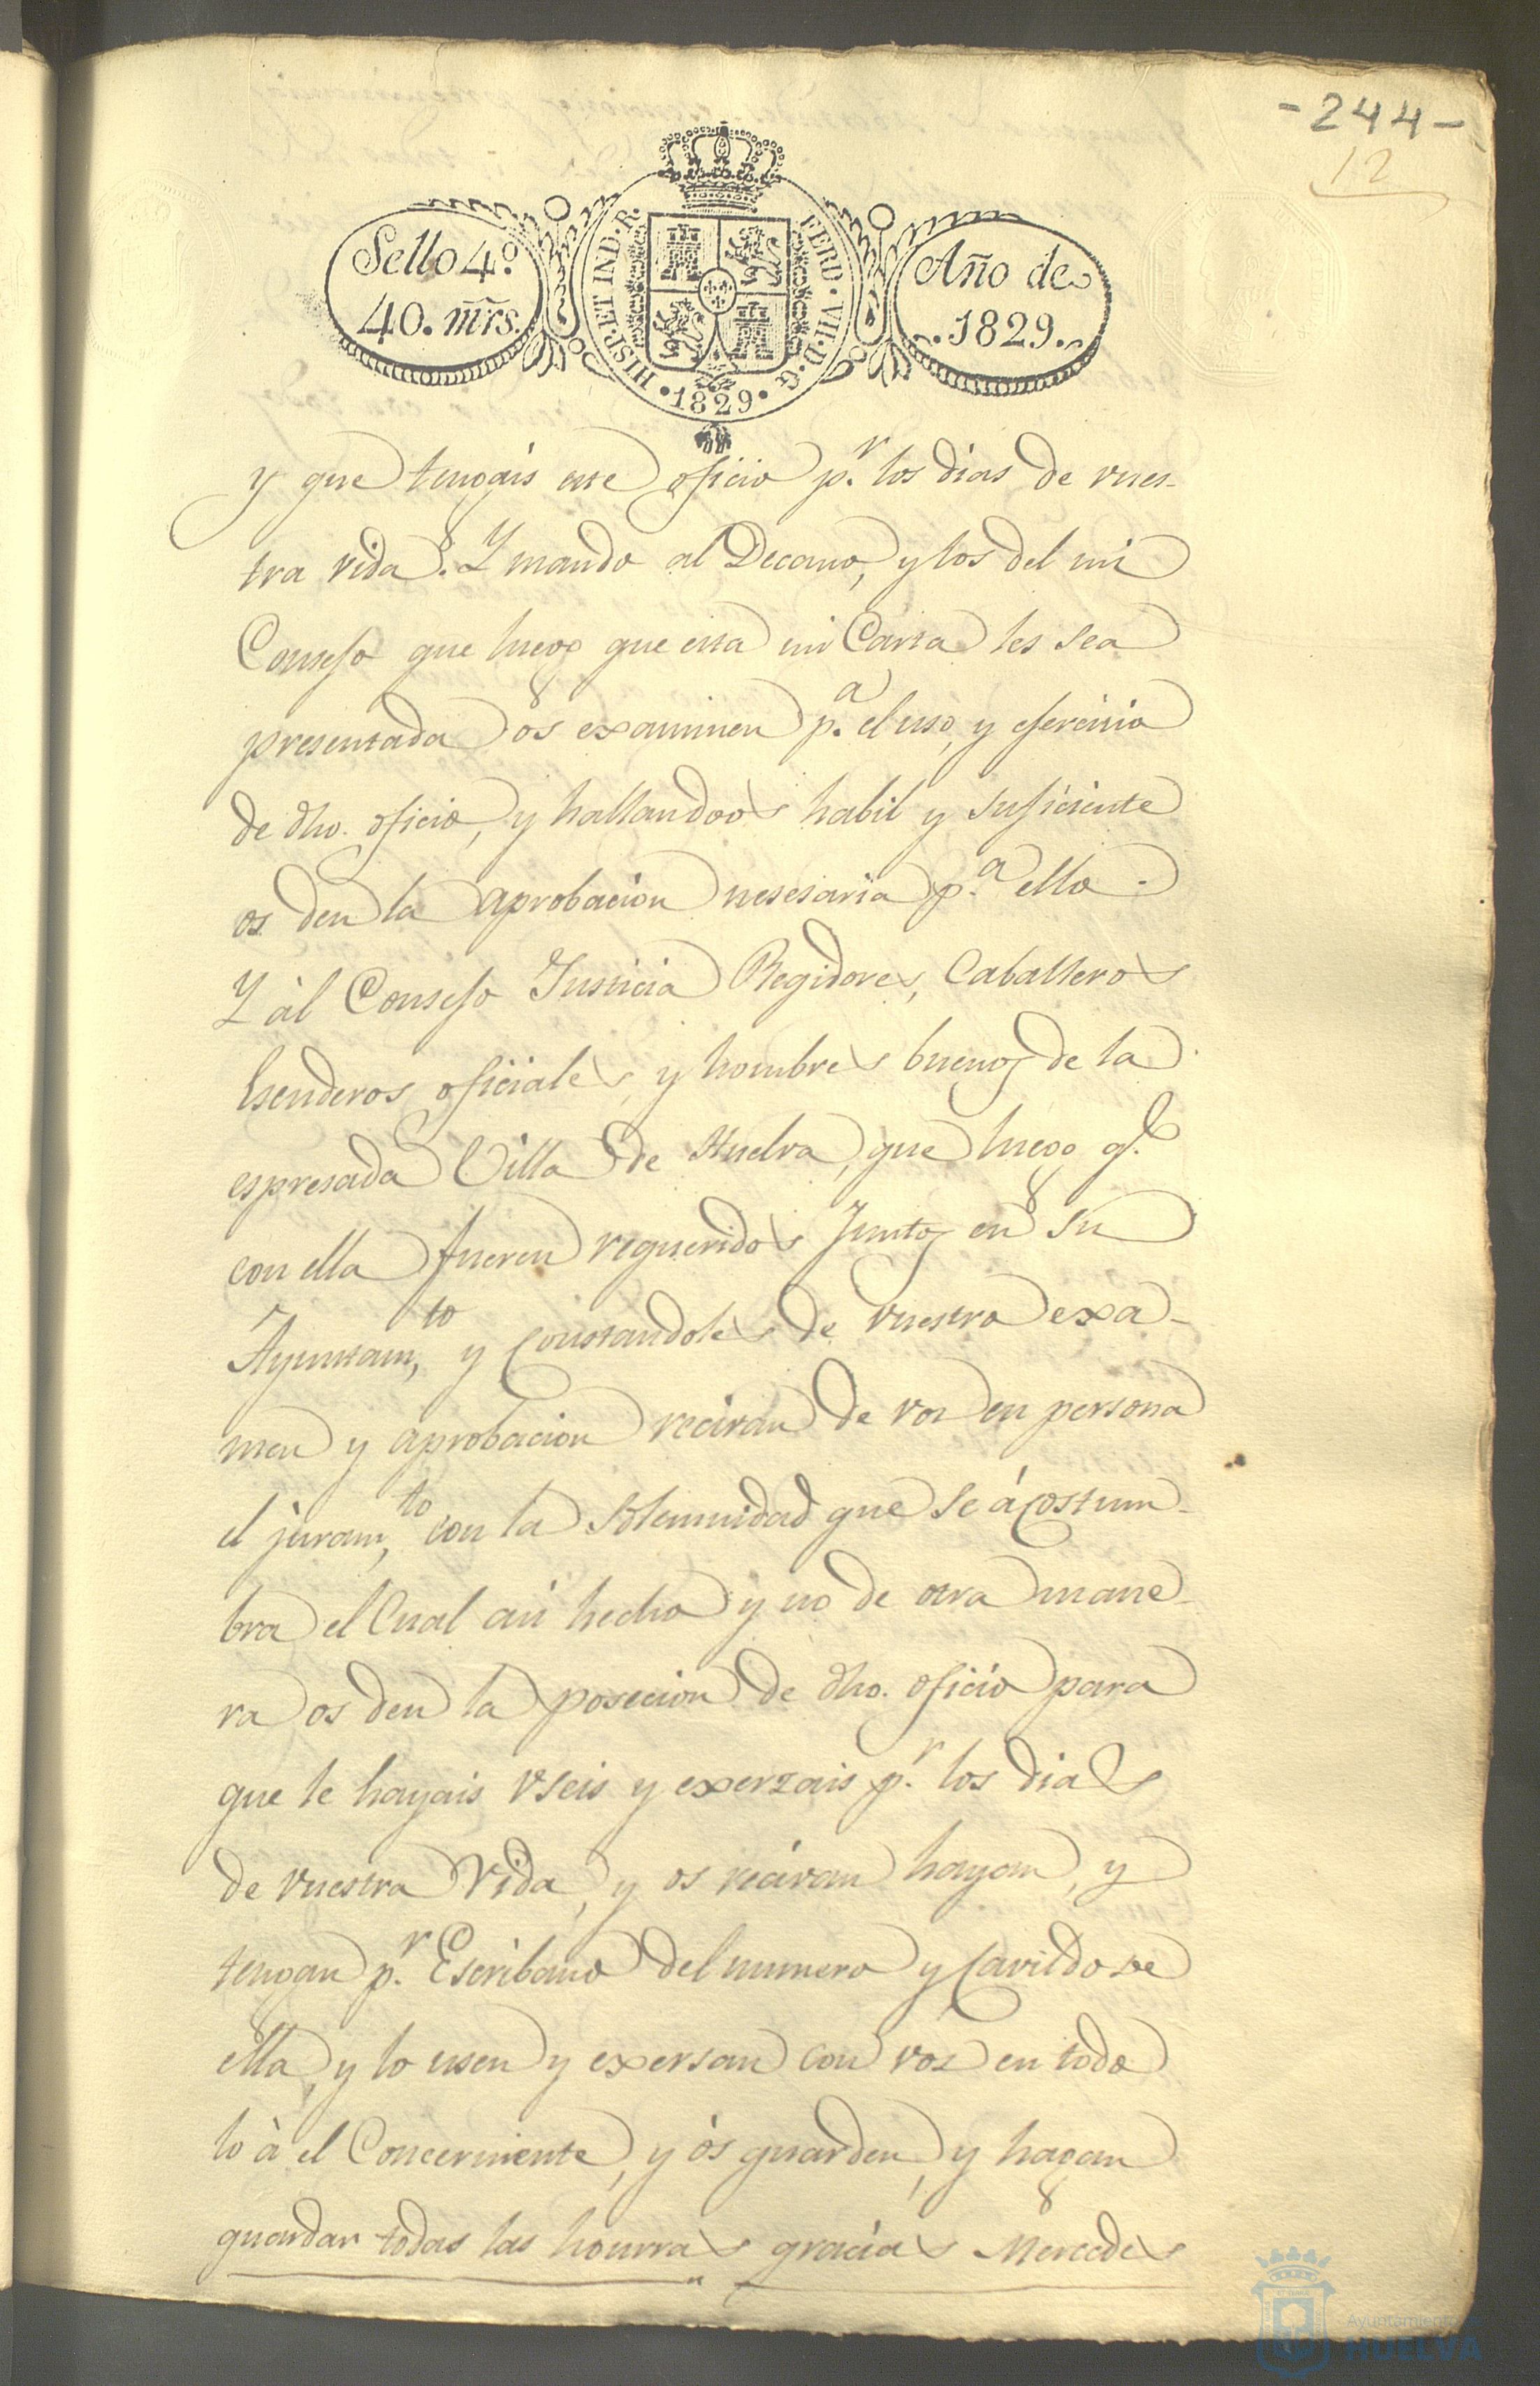 -244-
12
Sello 4º
40. mrs.
HISP. ET IND. R.
FERD. VII. D. G.
• 1829 •
Año de
1829.
y que tengáis este oficio p.r los dias de vues-
tra vida. Y mando al Decano, y los del mi
Consejo que luego que esta mi Carta les sea
presentada os examinen p.a el uso, y ejercicio
de dho. oficio, y hallandoos habil y suficiente
os den la aprobación nesesaria p.a ello.
Y àl Consejo Justicia Regidores, Caballeros
Esenderos oficiales, y hombres buenos de la
espresada Villa de Huelva, que luego q.e
con ella fueren requeridos Juntos en su
Ayuntam,to y Constandoles de vuestro exa-
men y aprobacion reciván de vos en persona
el juram,to con la solemnidad que se ácostum-
bra el Cual asi hecho y no de otra mane-
ra os den la posecion de dho. oficio para
que le hayais useis y exerzais p.r los dias
de vuestra Vida, y os recivan hayan, y
tengan p.r Escribano del numero y Cavildo de
ella, y lo usen y exersan con vos en todo
lo à el Concerniente, y ós guarden, y hagan
guardar todas las honrras gracias Mercedes
Ayuntamiento
HUELVA